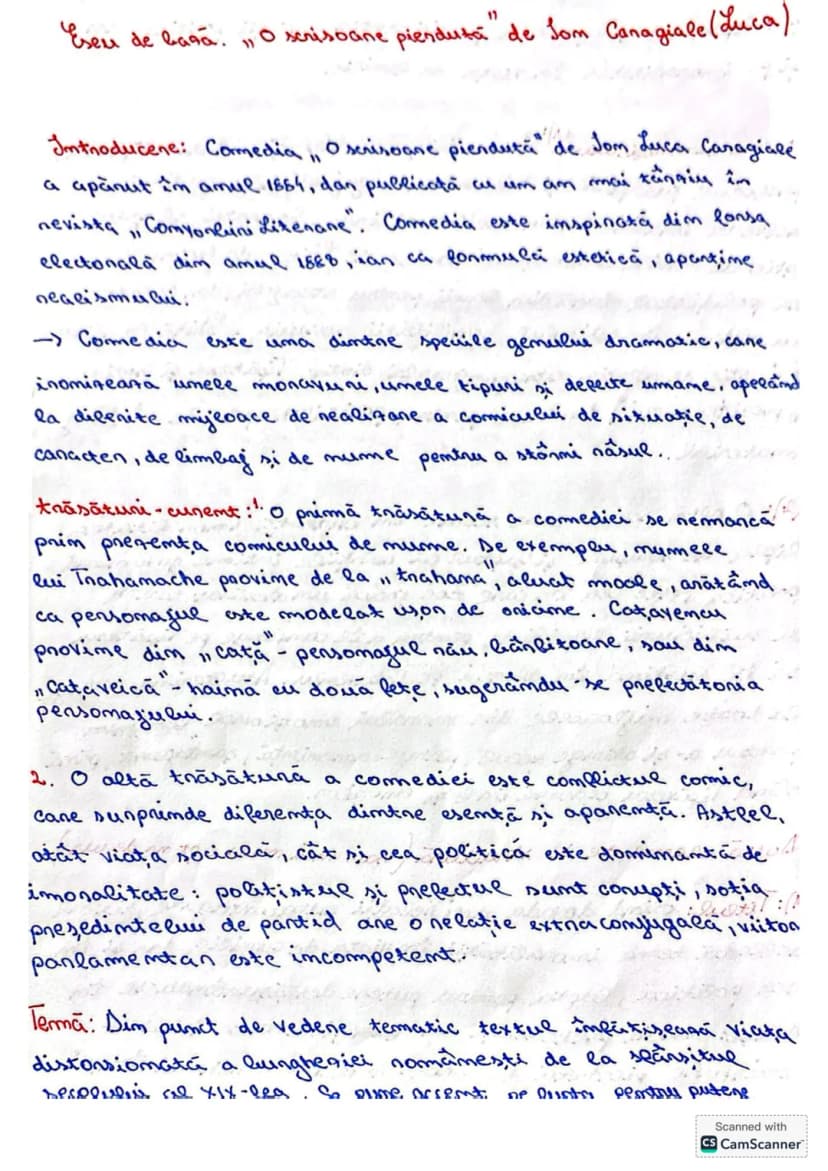 Eseu de bază. „O scrisoare pierdută" de Ion Caragiale (Luca)
Introducere: Comedia „O scrisoare pierdută" de Ion Luca Caragiale
a apărut în anul 1884, dar publicată cu un an mai târziu în
revista „Convorbiri Literare". Comedia este inspirată din farsa
electorală din anul 1883, iar ca formulă estetică, aparține
realismului.
→ Comedia este una dintre speciile genului dramatic, care
ironizează unele moravuri, unele tipuri și defecte umane, apelând
la diferite mijloace de realizare a comicului de situație, de
caracter, de limbaj și de nume pentru a stârni râsul.
trăsături-curent: 1 O primă trăsătură a comediei se remarcă
prin prezența comicului de nume. De exemplu, numele
lui Trahanache provine de la „trahana", aluat moale, arătând
ca personajul este modelat ușor de oricine. Cațavencu
provine din „cață" - personajul rău, bârfitoare, sau din
„cațaveică" - haină cu două fețe, sugerându-se prefectătoria
personajului
2. O altă trăsătură a comediei este conflictul comic,
care surprinde diferența dintre esență și aparență. Astfel,
atât viața socială, cât și cea politică este dominantă de
imoralitate: polițistul și prefectul sunt corupți, soția
președintelui de partid are o relație extraconjugală, viitor
parlamentar este incompetent.
Temă: Din punct de vedere tematic textul înfățișează viața
distorsionată a burgheziei românești de la sfârșitul
secolului al XIX-lea. Se pune accent pe lupta pentru putere
Scanned with
CS CamScanner